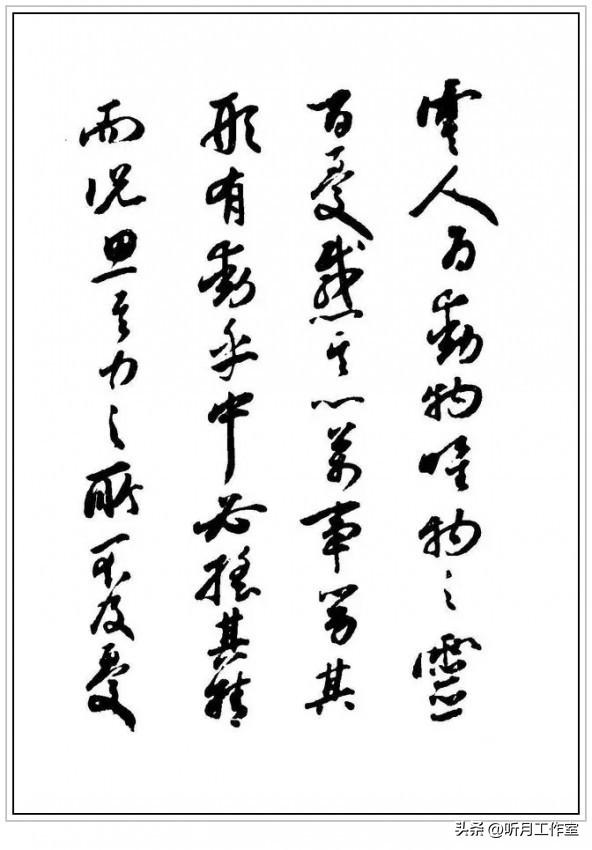 零人為動物唯物之靈
百憂感其心萬事勞其
形有動乎中必搖其精
而況思其力之所不及憂
头条 @听月工作室